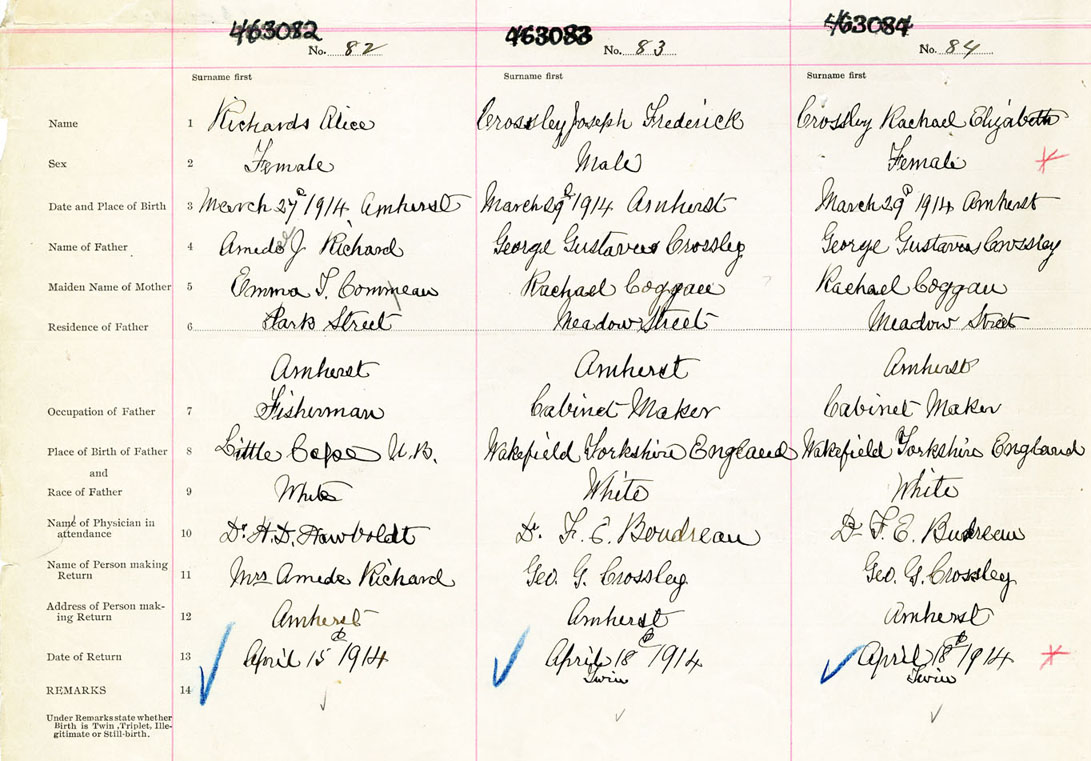 463082 463083 463084
No. 82 No. 83 No. 84
Surname first Surname first Surname first
Name 1 Richards Alice Crossley Joseph Frederick Crossley Rachael Elizabeth
Sex 2 Female Male Female
Date and Place of Birth 3 March 27th 1914 Amherst March 29th 1914 Amherst March 29th 1914 Amherst
Name of Father 4 Amede J. Richard George Gustavus Crossley George Gustavus Crossley
Maiden Name of Mother 5 Emma T. Commeau Rachael Coggau Rachael Coggau
Residence of Father 6 Park Street Meadow Street Meadow Street
Amherst Amherst Amherst
Occupation of Father 7 Fisherman Cabinet Maker Cabinet Maker
Place of Birth of Father 8 Little Cape N.B. Wakefield Yorkshire England Wakefield Yorkshire England
and
Race of Father 9 White White White
Name of Physician in
attendance 10 Dr. H. D. Howboldt Dr. F. E. Boudreau Dr F. E. Budreau
Name of Person making
Return 11 Mrs Amede Richard Geo. G. Crossley Geo. G. Crossley
Address of Person mak-
ing Return 12 Amherst Amherst Amherst
Date of Return 13 April 15th 1914 April 18th 1914 April 18th 1914
REMARKS 14 Twin Twin
Under Remarks state whether
Birth is Twin, Triplet, Ille-
gitimate or Still-birth.